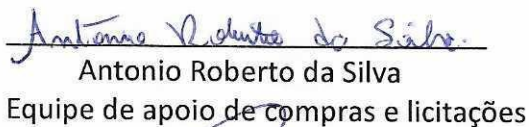 Antonio Roberto da Silva.
Antonio Roberto da Silva
Equipe de apoio de compras e licitações